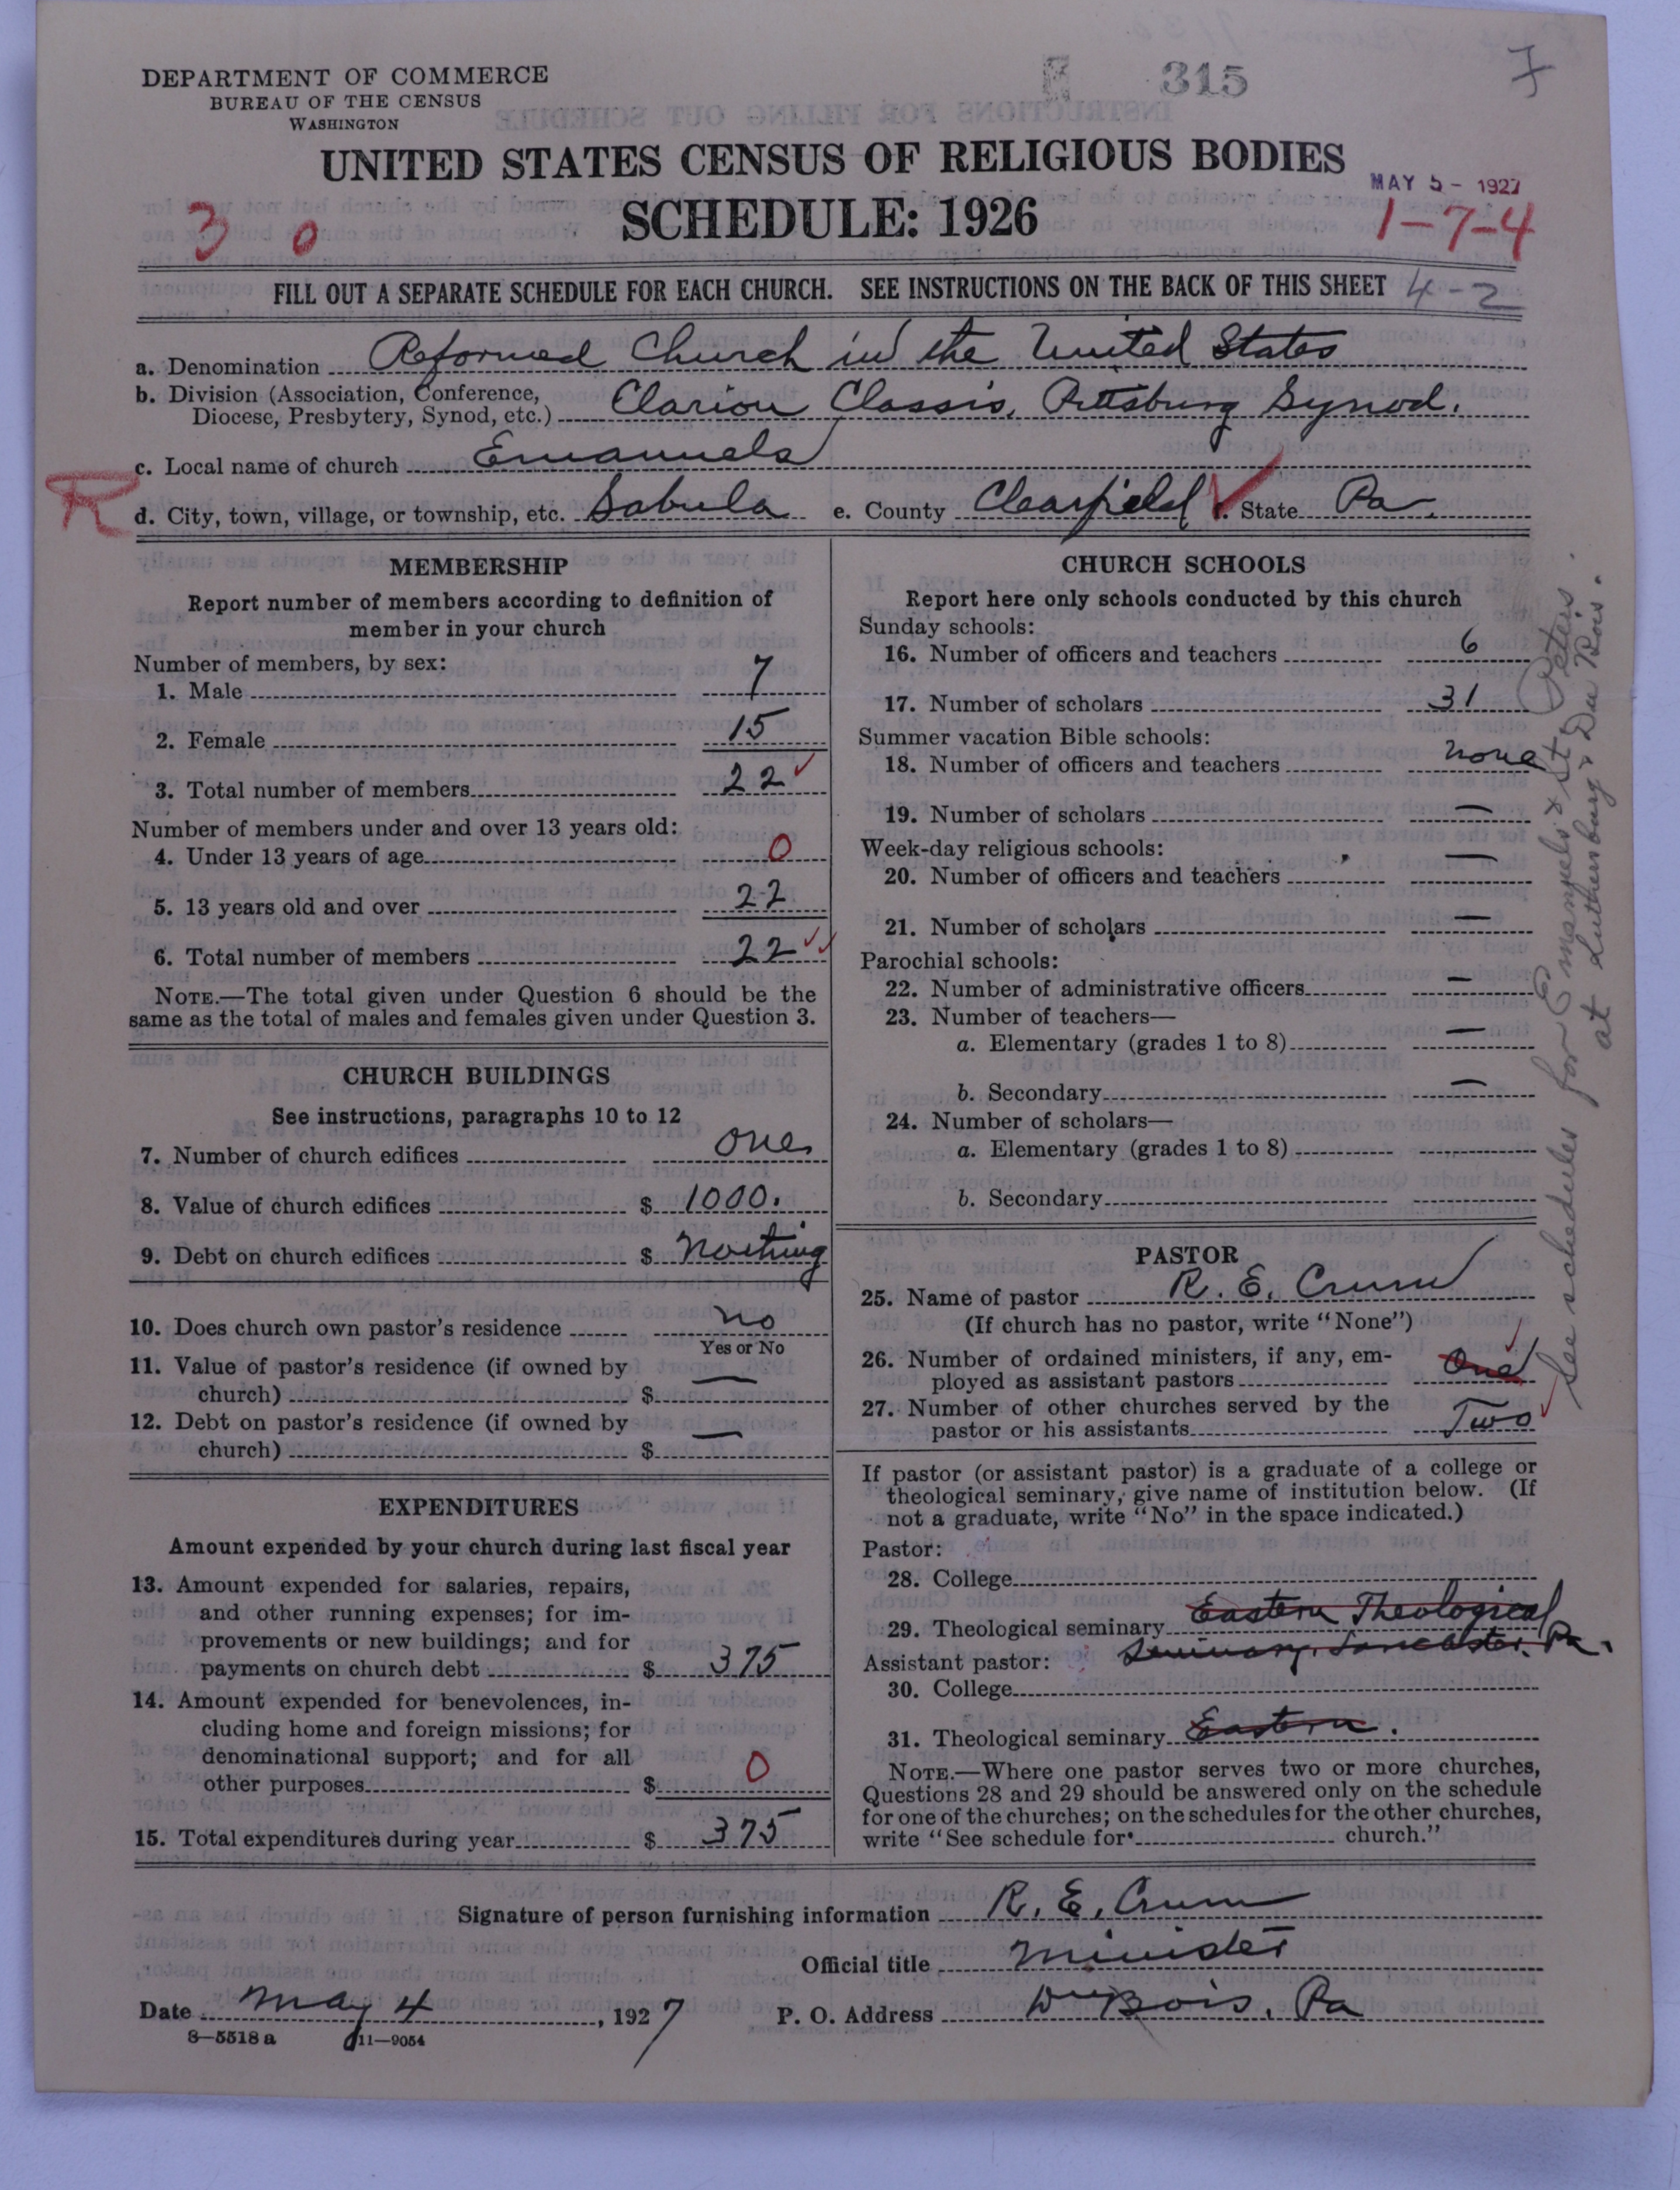 DEPARTMENT OF COMMERCE
BUREAU OF THE CENSUS
WASHINGTON
315
7
UNITED STATES CENSUS OF RELIGIOUS BODIES
MAY 5 - 1927
SCHEDULE: 1926
3 0
1-7-4
FILL OUT A SEPARATE SCHEDULE FOR EACH CHURCH. SEE INSTRUCTIONS ON THE BACK OF THIS SHEET 4-2
a. Denomination Reformed Church in the United States
b. Division (Association, Conference,
Diocese, Presbytery, Synod, etc.) Clarion Classis, Pittsburg Synod.
c. Local name of church Emanuels
R
d. City, town, village, or township, etc. Sabula e. County Clearfield f. State Pa.
MEMBERSHIP
Report number of members according to definition of
member in your church
Number of members, by sex:
1. Male 7
2. Female 15
3. Total number of members 22
Number of members under and over 13 years old:
4. Under 13 years of age 0
5. 13 years old and over 22
6. Total number of members 22
NOTE.—The total given under Question 6 should be the
same as the total of males and females given under Question 3.
CHURCH BUILDINGS
See instructions, paragraphs 10 to 12
7. Number of church edifices one
8. Value of church edifices $ 1000.
9. Debt on church edifices $ Noithing
10. Does church own pastor's residence no
Yes or No
11. Value of pastor's residence (if owned by
church) $ —
12. Debt on pastor's residence (if owned by
church) $ —
EXPENDITURES
Amount expended by your church during last fiscal year
13. Amount expended for salaries, repairs,
and other running expenses; for im-
provements or new buildings; and for
payments on church debt $ 375
14. Amount expended for benevolences, in-
cluding home and foreign missions; for
denominational support; and for all
other purposes $ 0
15. Total expenditures during year $ 375
CHURCH SCHOOLS
Report here only schools conducted by this church
Sunday schools:
16. Number of officers and teachers 6
17. Number of scholars 31
Summer vacation Bible schools:
18. Number of officers and teachers none
19. Number of scholars —
Week-day religious schools:
20. Number of officers and teachers —
21. Number of scholars —
Parochial schools:
22. Number of administrative officers —
23. Number of teachers—
a. Elementary (grades 1 to 8) —
b. Secondary —
24. Number of scholars—
a. Elementary (grades 1 to 8)
b. Secondary
PASTOR
25. Name of pastor R. E. Crum
(If church has no pastor, write "None")
26. Number of ordained ministers, if any, em-
ployed as assistant pastors One
27. Number of other churches served by the
pastor or his assistants Two
If pastor (or assistant pastor) is a graduate of a college or
theological seminary, give name of institution below. (If
not a graduate, write "No" in the space indicated.)
Pastor:
28. College
29. Theological seminary Eastern Theological
Seminary, Lancaster, Pa.
Assistant pastor:
30. College
31. Theological seminary Eastern.
NOTE.—Where one pastor serves two or more churches,
Questions 28 and 29 should be answered only on the schedule
for one of the churches; on the schedules for the other churches,
write "See schedule for church."
See schedules for Emanuels & St Peters
at Luthersburg & Du Bois.
Signature of person furnishing information R. E. Crum
Official title Minister
Date May 4, 1927 P. O. Address DuBois, Pa
8—5518 a 11—9054